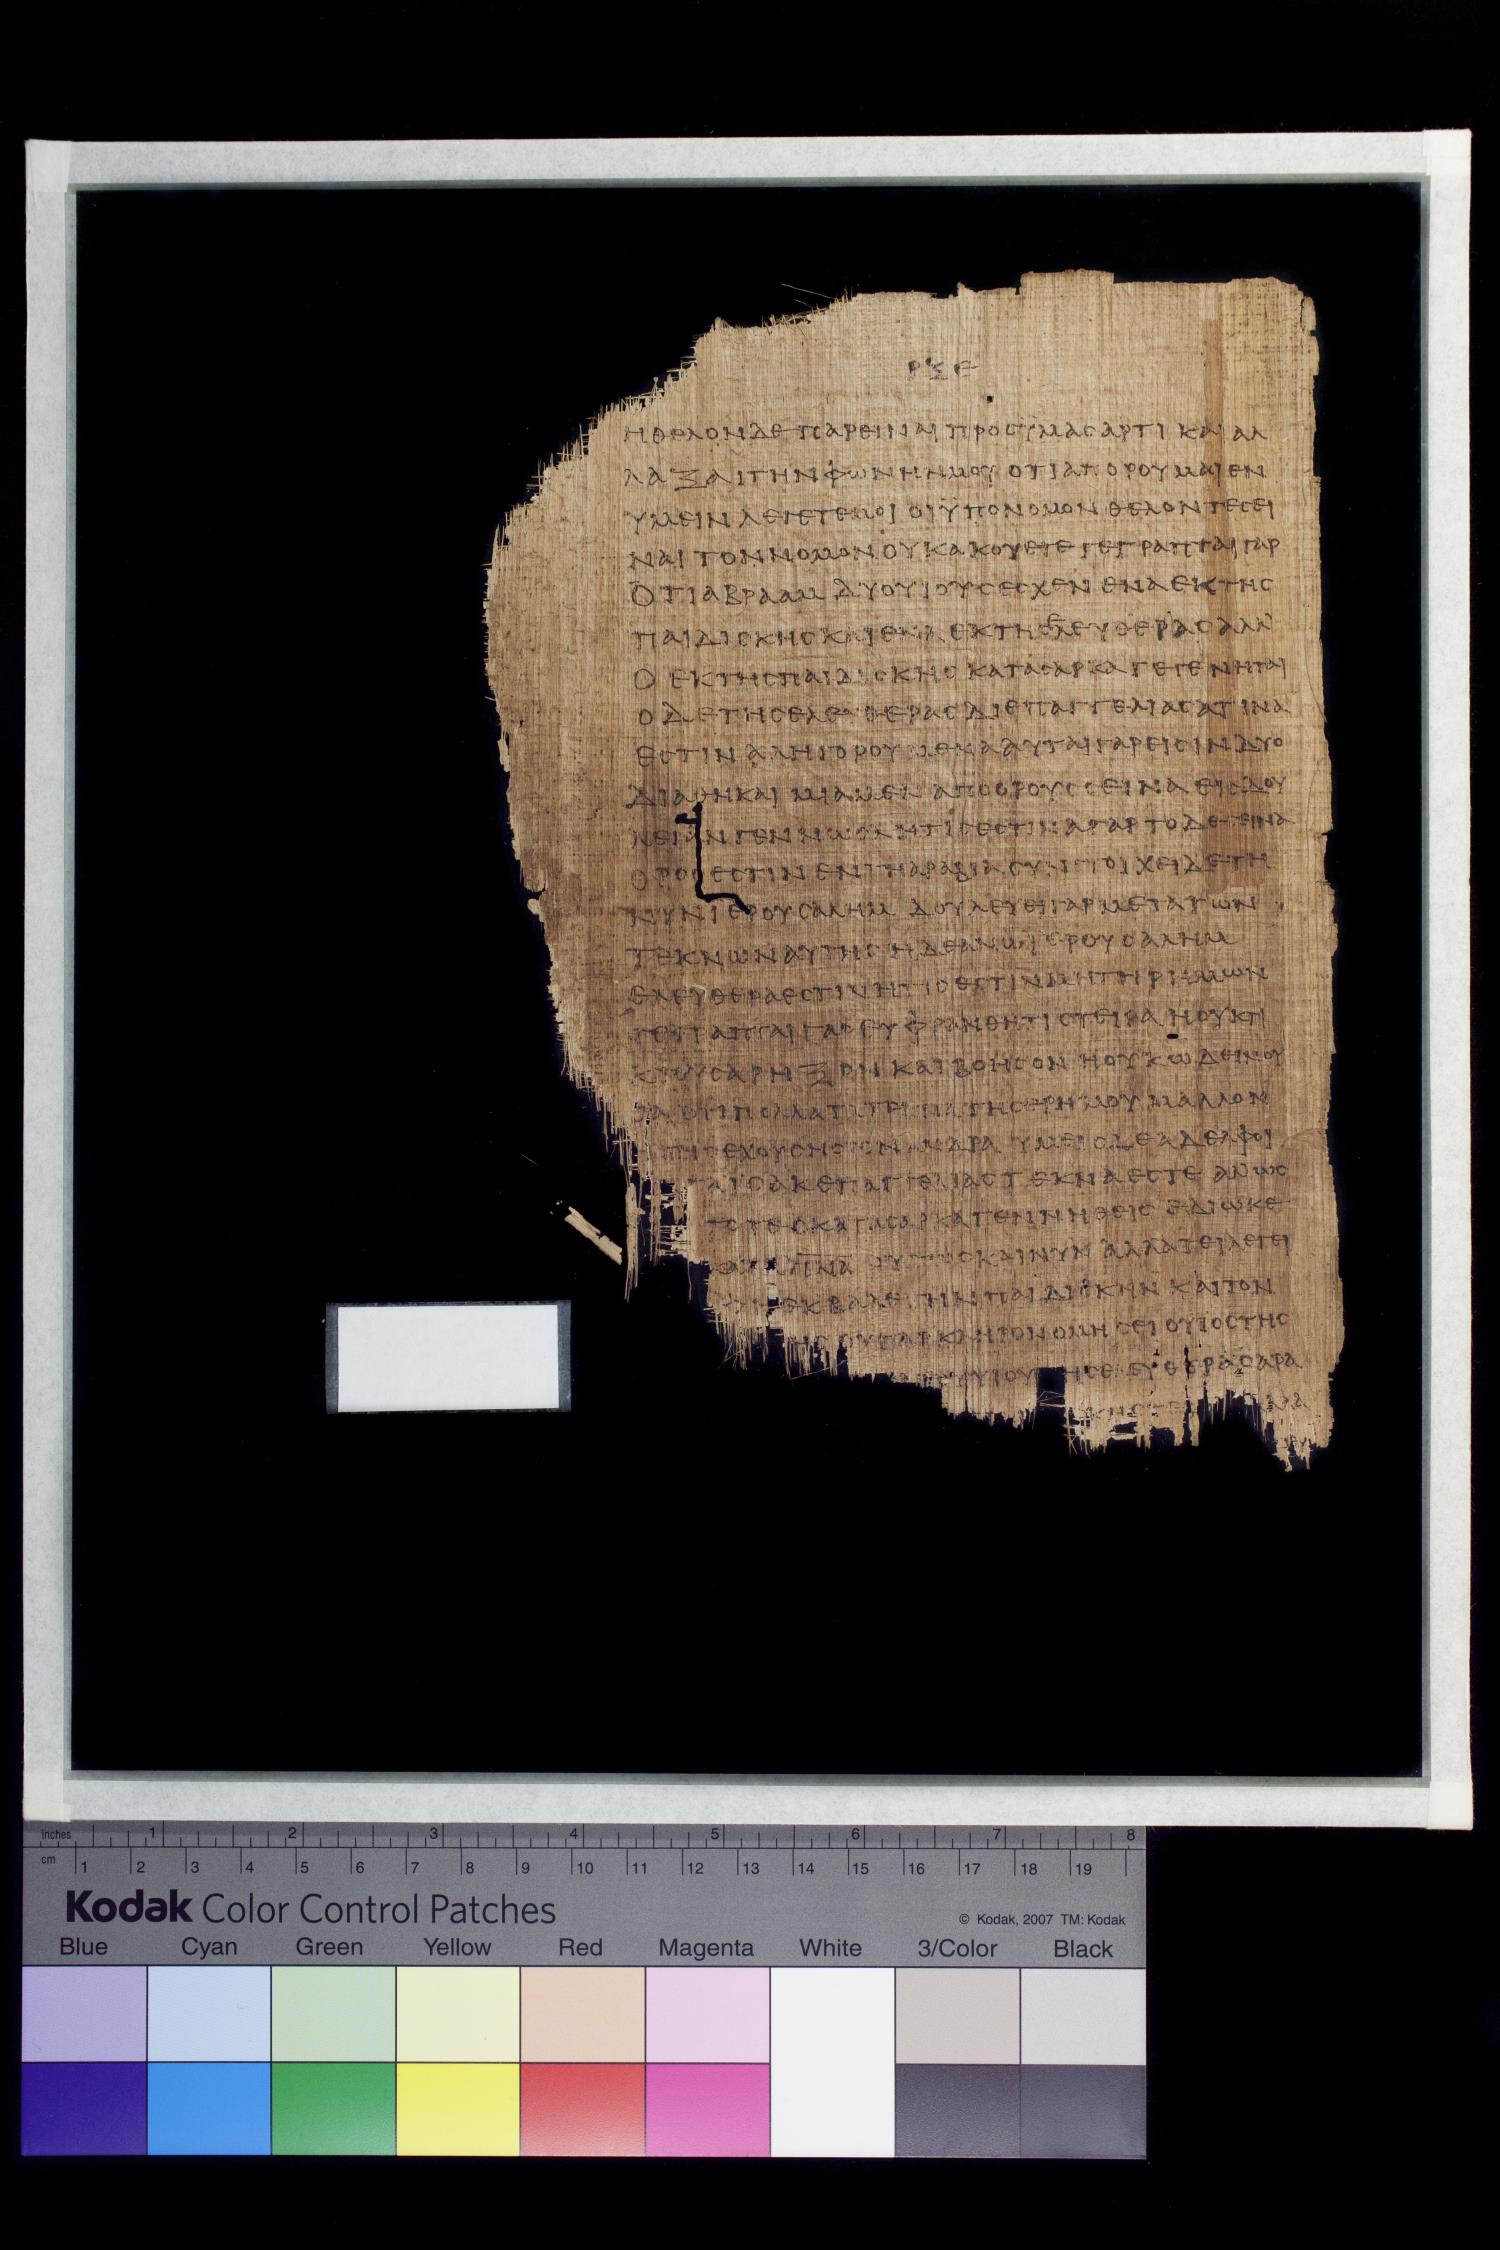 ΡΞΕ
ΗΘΕΛΟΝΔΕΠΑΡΕΙΝΑΙΠΡΟϹΥΜΑϹΑΡΤΙ ΚΑΙΑΛ
ΛΑΞΑΙΤΗΝΦΩΝΗΝΜΟΥ ΟΤΙΑΠΟΡΟΥΜΑΙΕΝ
ΥΜΕΙΝ ΛΕΓΕΤΕΜΟΙ ΟΙΥΠΟΝΟΜΟΝ ΘΕΛΟΝΤΕϹΕΙ
ΝΑΙ ΤΟΝΝΟΜΟΝ ΟΥΚΑΚΟΥΕΤΕ ΓΕΓΡΑΠΤΑΙΓΑΡ
ΟΤΙΑΒΡΑΑΜ ΔΥΟΥΙΟΥϹΕϹΧΕΝ ΕΝΑΕΚΤΗϹ
ΠΑΙΔΙϹΚΗϹΚΑΙΕΝΑ ΕΚΤΗϹΕΛΕΥΘΕΡΑϹΑΛΛ
Ο ΕΚΤΗϹΠΑΙΔΙϹΚΗϹ ΚΑΤΑϹΑΡΚΑΓΕΓΕΝΗΤΑΙ
ΟΔΕΤΗϹΕΛΕΥΘΕΡΑϹΔΙΕΠΑΓΓΕΛΙΑϹΑΤΙΝΑ
ΕϹΤΙΝ ΑΛΛΗΓΟΡΟΥΜΕΝΑΑΥΤΑΙΓΑΡΕΙϹΙΝΔΥΟ
ΔΙΑΘΗΚΑΙ ΜΙΑΜΕΝ ΑΠΟΟΡΟΥϹϹΕΙΝΑ ΕΙϹΔΟΥ
ΛΕΙΑΝΓΕΝΝΩϹΑΗΤΙϹΕϹΤΙΝΑΓΑΡΤΟΔΕϹΕΙΝΑ
ΟΡΟϹΕϹΤΙΝ ΕΝΤΗΑΡΑΒΙΑϹΥΝϹΤΟΙΧΕΙΔΕΤΗ
ΝΥΝΙΕΡΟΥϹΑΛΗΜ ΔΟΥΛΕΥΕΙΓΑΡΜΕΤΑΤΩΝ
ΤΕΚΝΩΝΑΥΤΗϹ ΗΔΕΑΝΩΙΕΡΟΥϹΑΛΗΜ
ΕΛΕΥΘΕΡΑΕϹΤΙΝΗΤΙϹΕϹΤΙΝΜΗΤΗΡΗΜΩΝ
ΓΕΓΡΑΠΤΑΙΓΑΡΕΥΦΡΑΝΘΗΤΙϹΤΕΙΡΑ ΗΟΥΚΤΙ
ΚΤΟΥϹΑΡΗΞΟΝ ΚΑΙΒΟΗϹΟΝ ΗΟΥΚΩΔΕΙΝΟΥ
ϹΑΟΤΙΠΟΛΛΑΤΑΤΕΚΝΑΤΗϹΕΡΗΜΟΥ ΜΑΛΛΟΝ
ΕΧΟΥϹΗϹΤΟΝΑΝΔΡΑ ΥΜΕΙϹΔΕΑΔΕΛΦΟΙ
ΙϹΑΑΚΕΠΑΓΓΕΛΙΑϹΤΕΚΝΑΕϹΤΕ ΑΛΛΩϹ
ΤΟΤΕΟΚΑΤΑϹΑΡΚΑΓΕΝΝΗΘΕΙϹ ΕΔΙΩΚΕ
ΚΑΤΑΠΝΑ ΟΥΤΩϹΚΑΙΝΥΝ ΑΛΛΑΤΕΙΛΕΓΕΙ
ΕΚΒΑΛΕΤΗΝΠΑΙΔΙϹΚΗΝ ΚΑΙΤΟΝ
ΗϹ ΟΥΓΑΡΚΛΗΡΟΝΟΜΗϹΕΙΟΥΙΟϹΤΗϹ
ΤΟΥΥΙΟΥΤΗϹΕΛΕΥΘΕΡΑϹΑΡΑ
ΚΗϹΤΕ
inches 1 2 3 4 5 6 7 8
cm 1 2 3 4 5 6 7 8 9 10 11 12 13 14 15 16 17 18 19
Kodak Color Control Patches
© Kodak, 2007 TM: Kodak
Blue Cyan Green Yellow Red Magenta White 3/Color Black